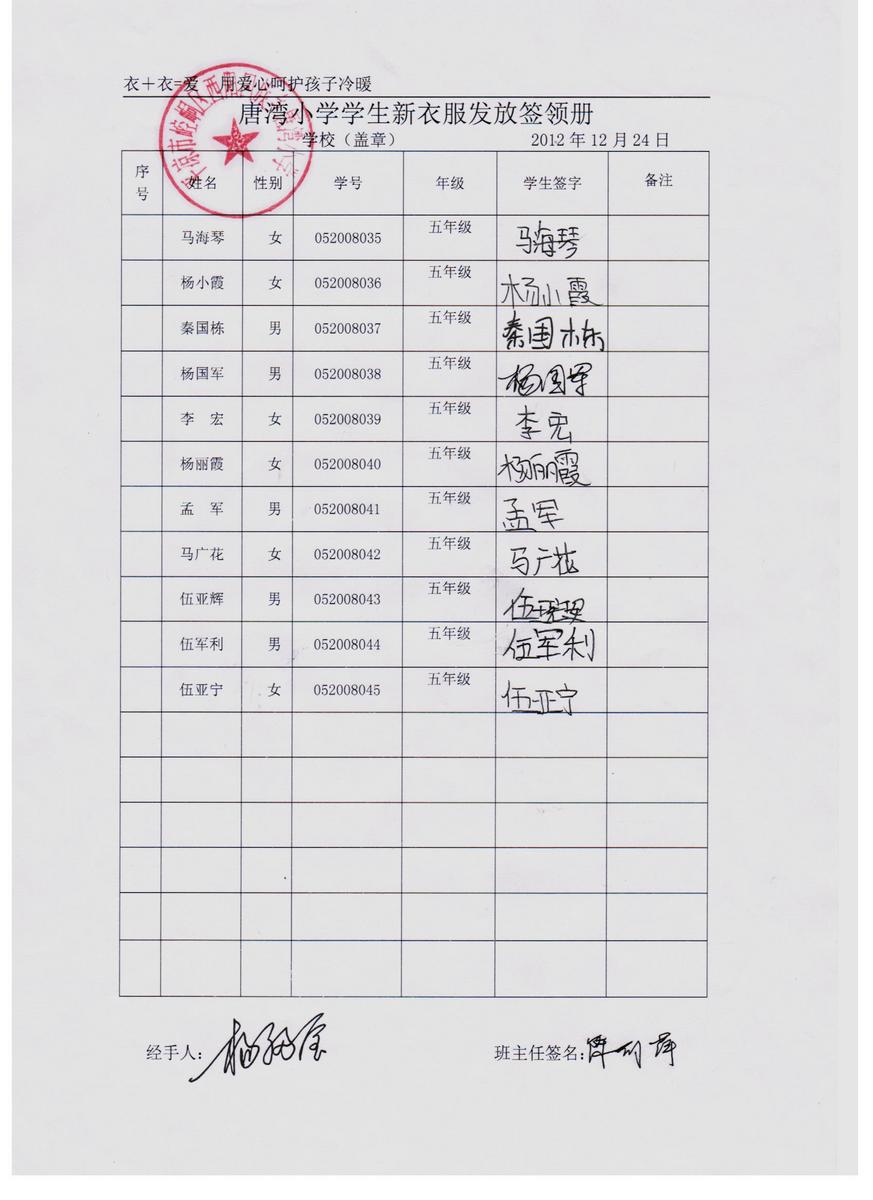 衣＋衣=爱 用爱心呵护孩子冷暖
唐湾小学学生新衣服发放签领册
学校（盖章） 2012 年 12 月 24 日
序号 姓名 性别 学号 年级 学生签字 备注
马海琴 女 052008035 五年级 马海琴
杨小霞 女 052008036 五年级 杨小霞
秦国栋 男 052008037 五年级 秦国栋
杨国军 男 052008038 五年级 杨国军
李 宏 女 052008039 五年级 李宏
杨丽霞 女 052008040 五年级 杨丽霞
孟 军 男 052008041 五年级 孟军
马广花 女 052008042 五年级 马广花
伍亚辉 男 052008043 五年级 伍
伍军利 男 052008044 五年级 伍军利
伍亚宁 女 052008045 五年级 伍亚宁
经手人： 班主任签名：